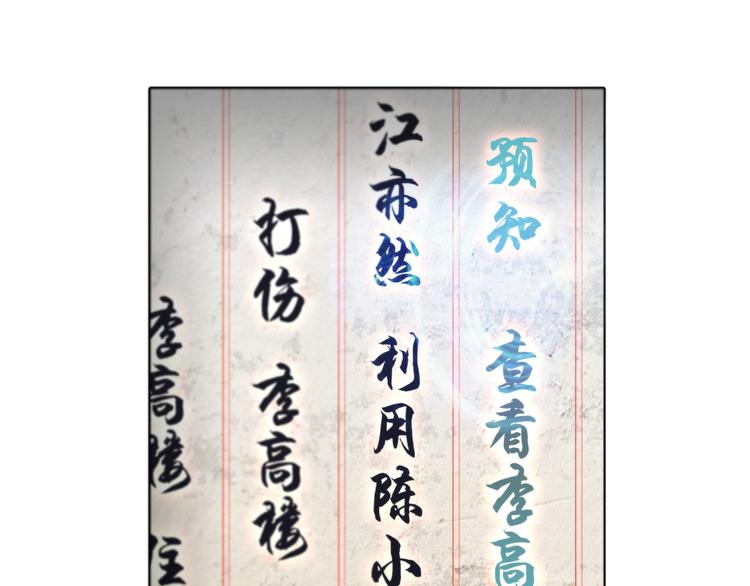 预知 查看李高
江亦然 利用陈小
打伤 李高楼
李高楼 住